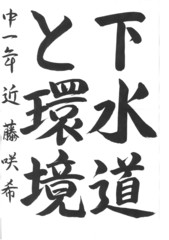 下水道
と環境
中一年 近藤咲希